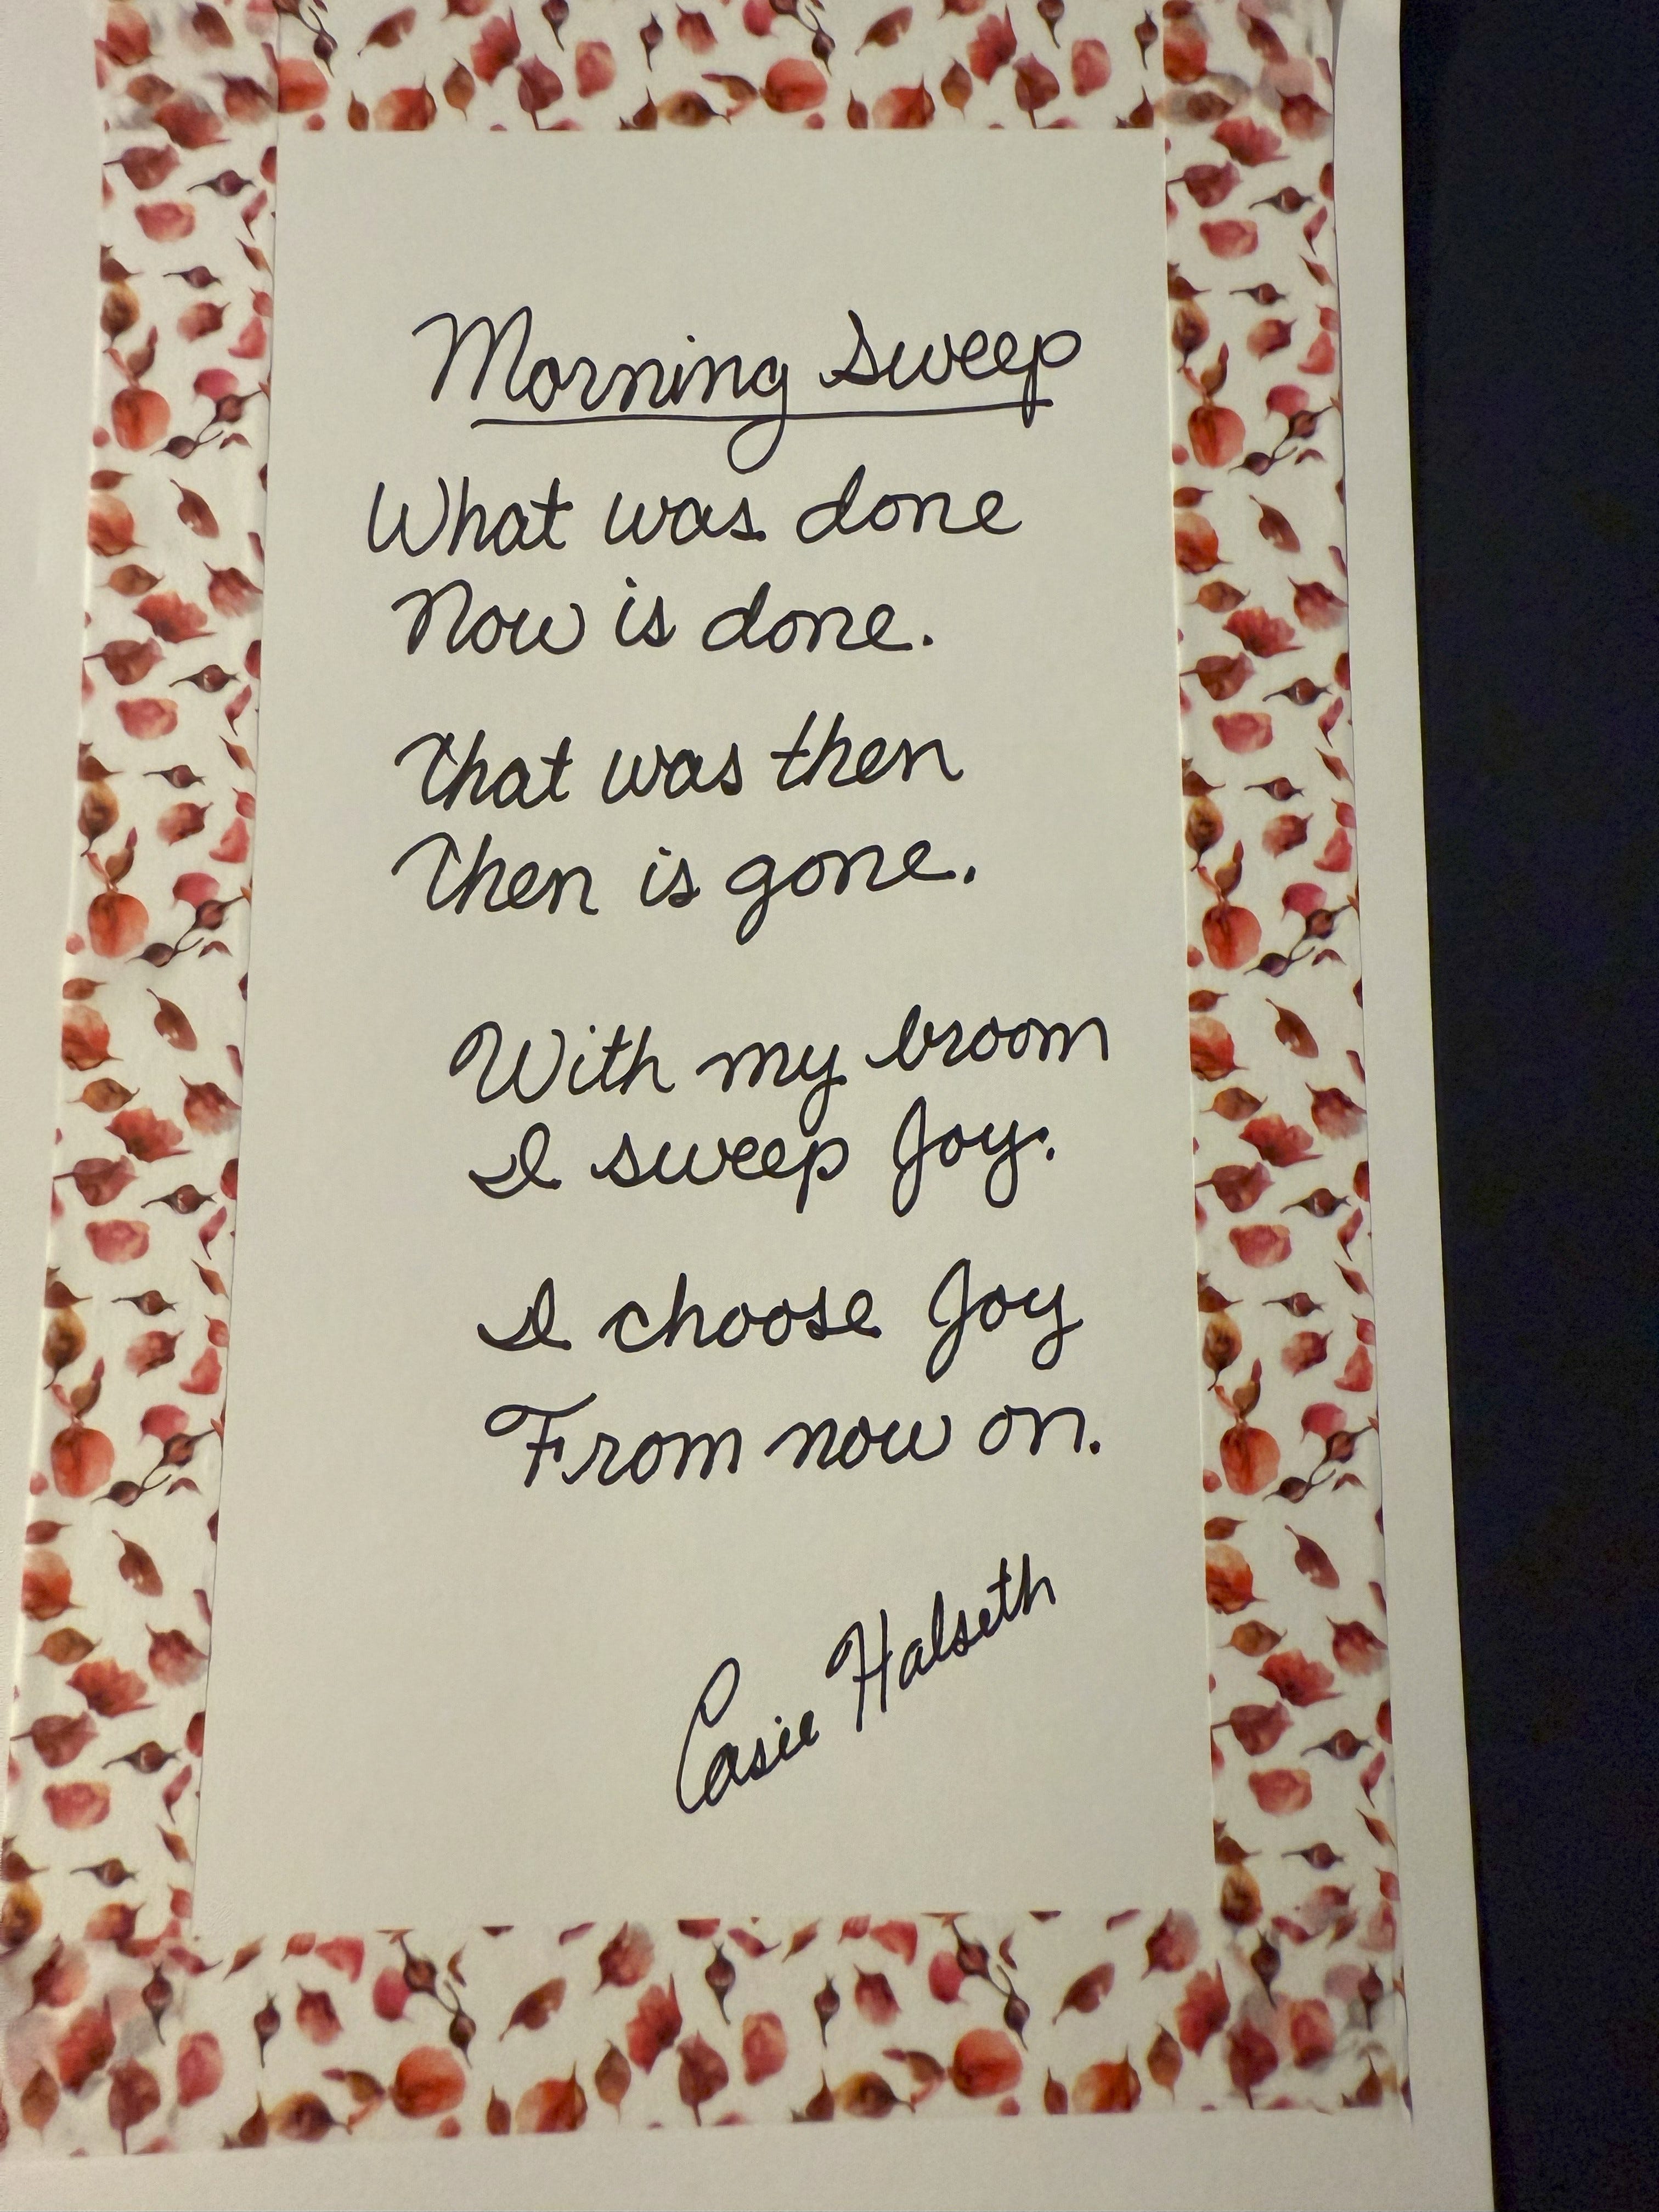 Morning Sweep
What was done
Now is done.
That was then
Then is gone.
With my broom
I sweep Joy.
I choose Joy
From now on.
Casie Halseth